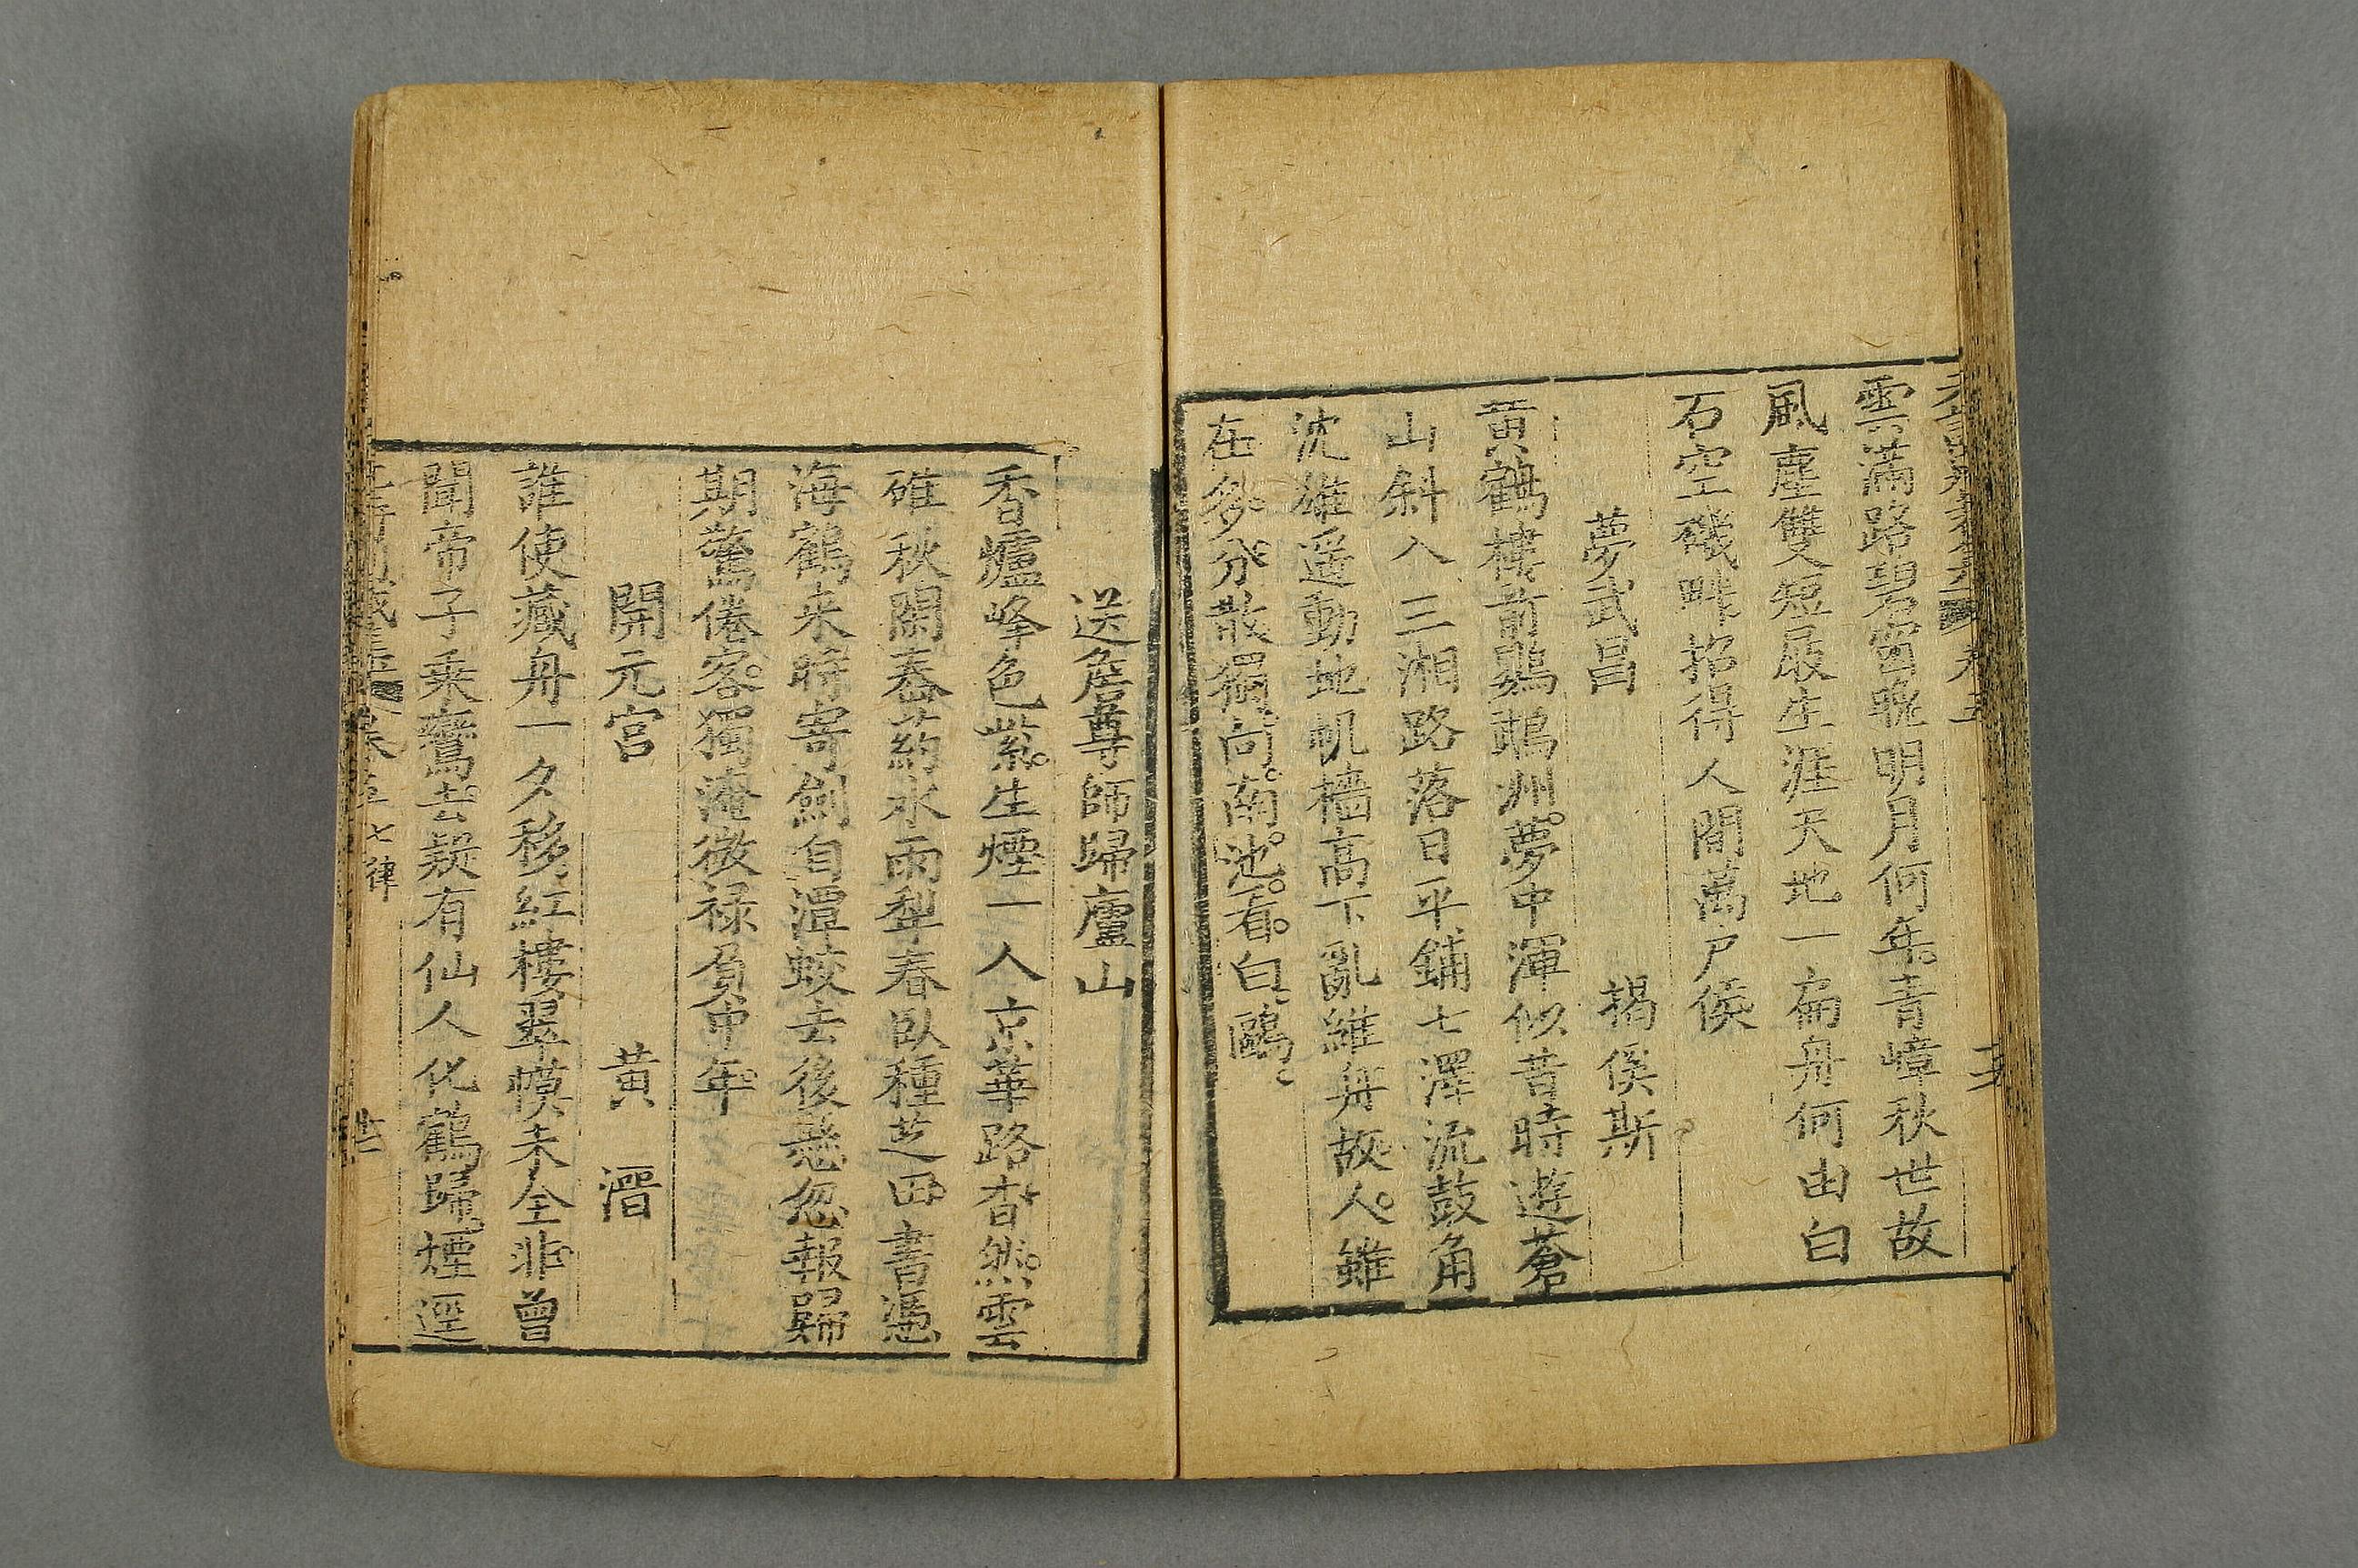 雲滿路碧窗晚明月何年青嶂秋世故
風塵雙短屐生涯天地一扁舟何由白
石空磯畔招得人間萬戶侯
夢武昌 揭傒斯
黃鶴樓前鸚鵡洲夢中渾似昔時遊蒼
山斜入三湘路落日平鋪七澤流鼓角
沈雄遥動地帆檣高下亂維舟故人雖
在多分散獨向南池看白鷗
送詹尊師歸廬山
香爐峰色紫生煙一人京華路杳然雲
碓秋閑舂葯水雨犁春臥種芝田書憑
海鶴来時寄劍自潭蛟去後懸忽報歸
期驚倦客獨淹微禄負中年
開元宮 黃溍
誰使藏舟一夕移紅樓翠幙未全非曾
聞帝子乗鸞去疑有仙人化鶴歸煙逕
七律